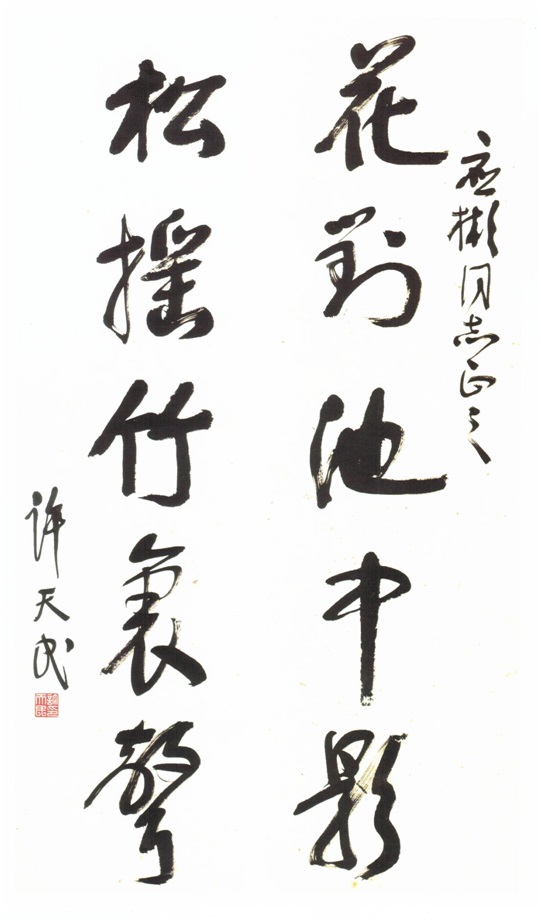 应彬同志正之
花對池中影
松摇竹裏聲
许天民